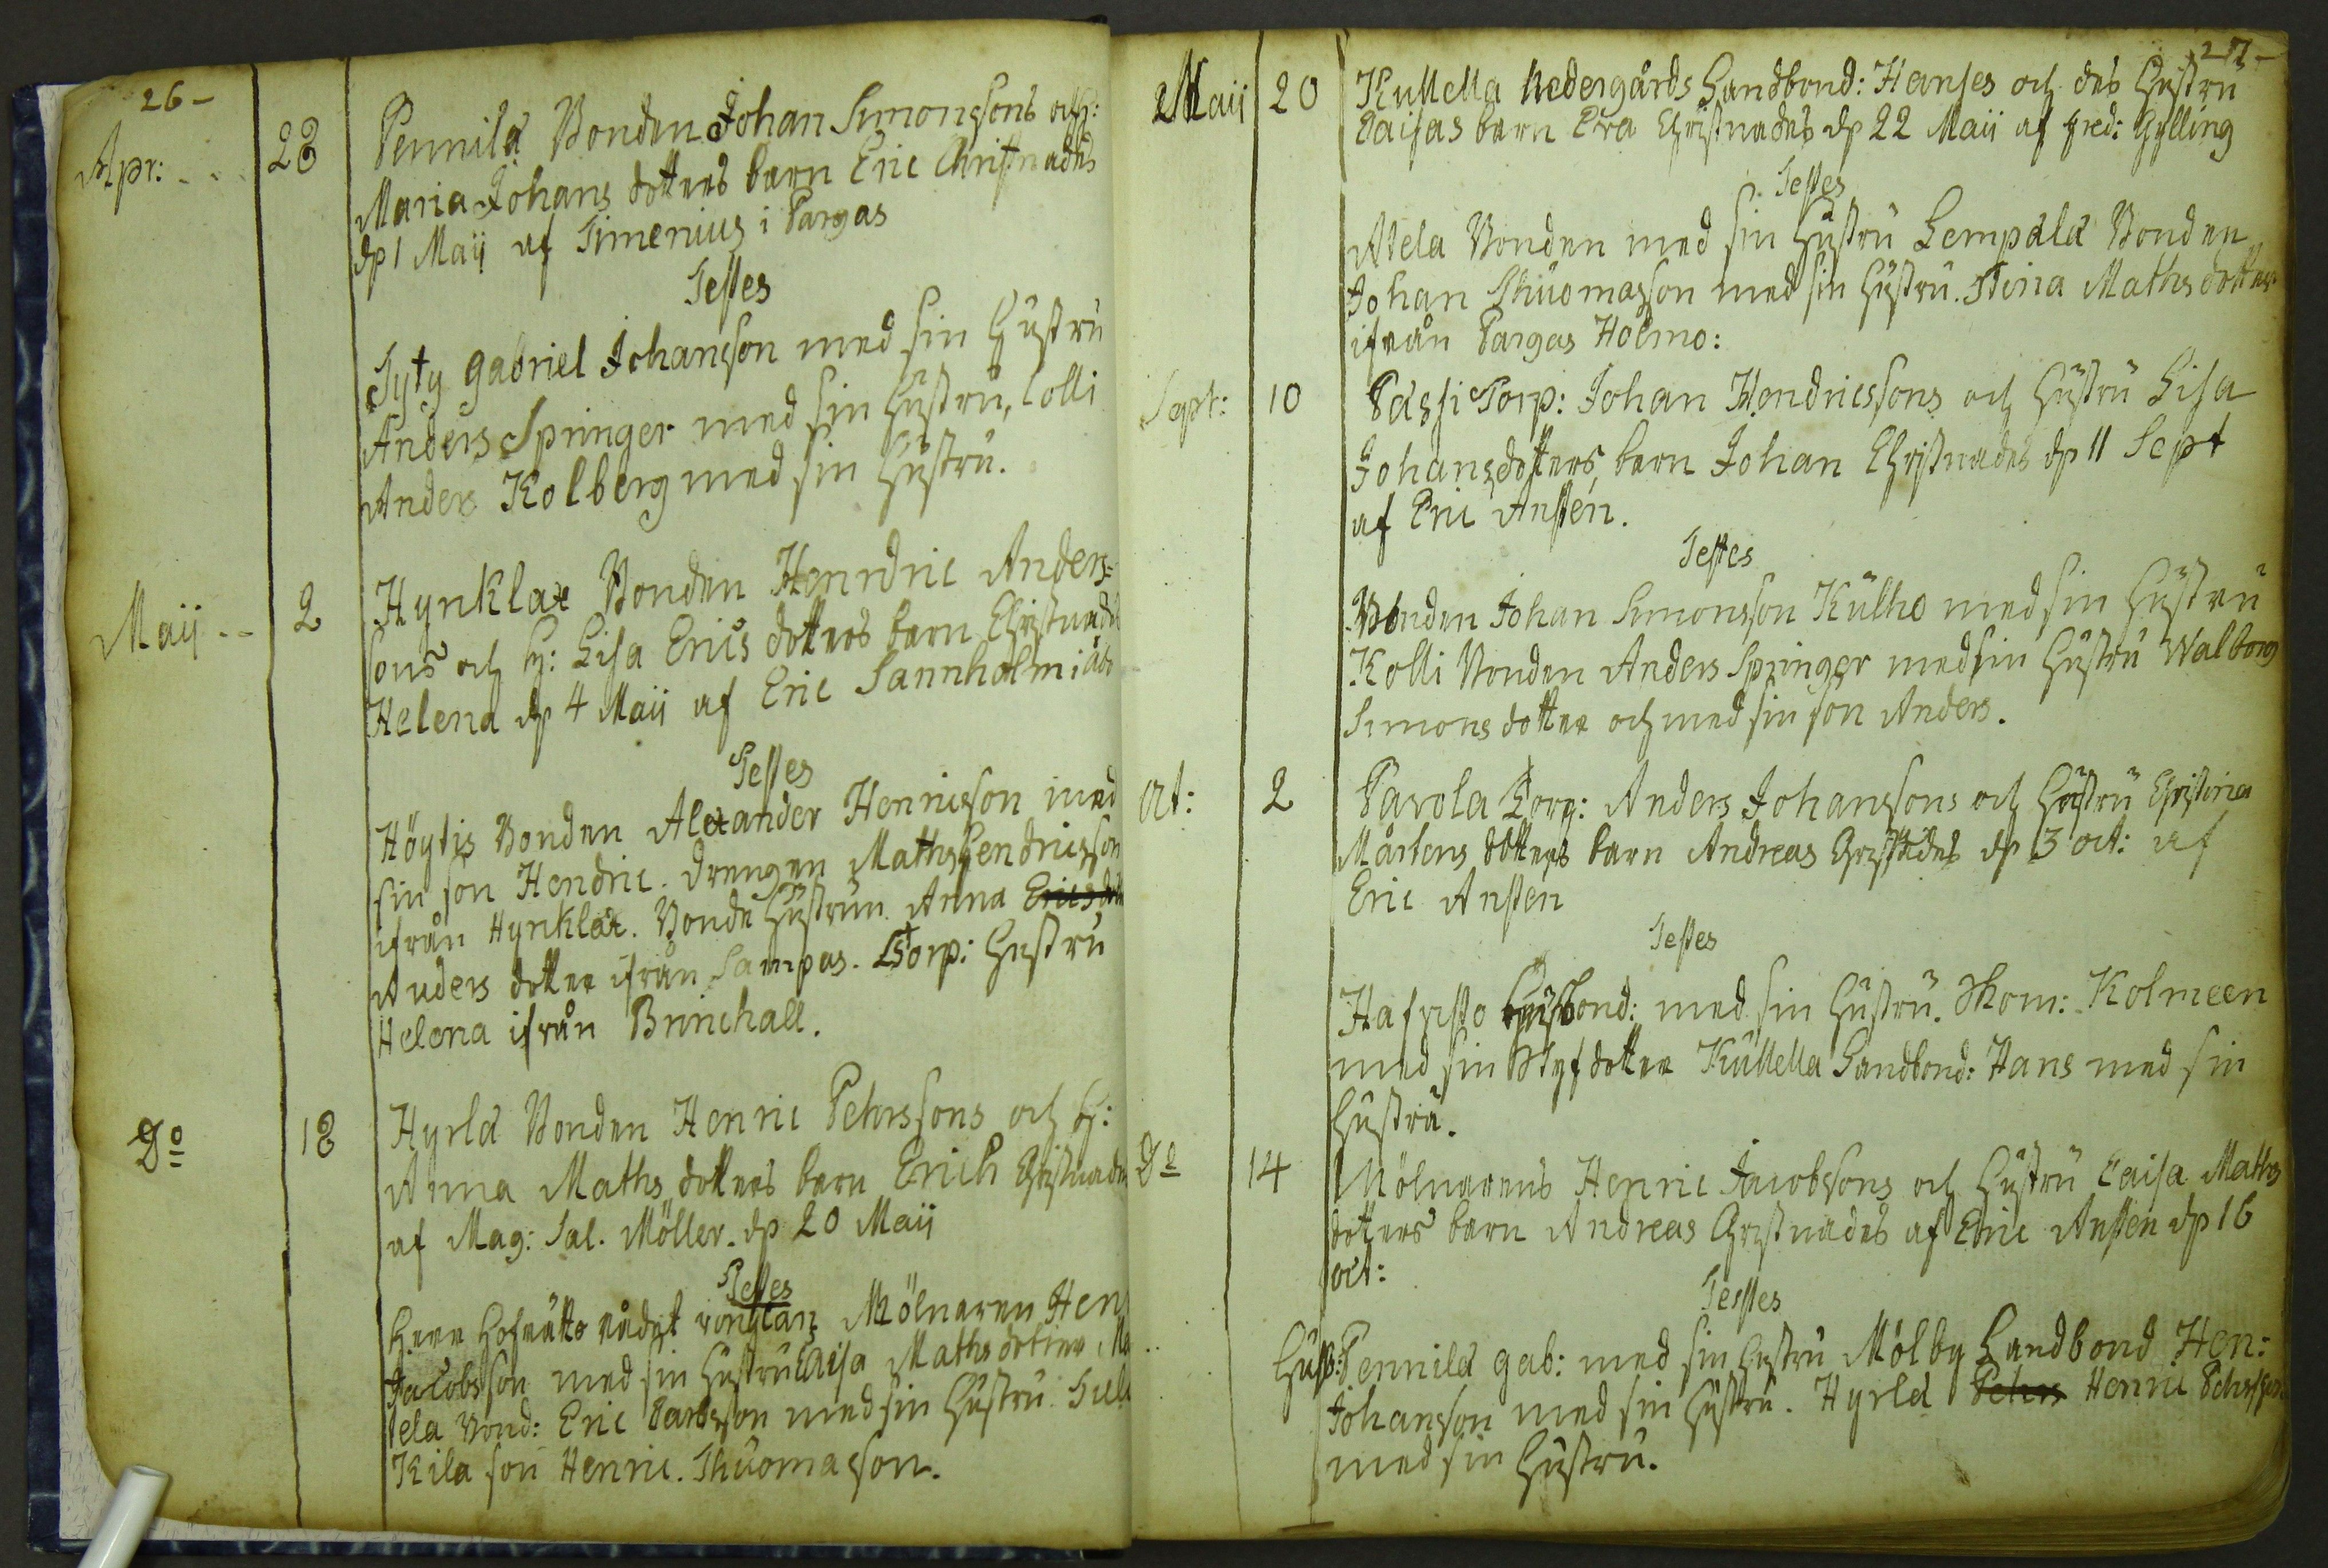 26-
Apr: 23 Pennilä Bonden Johan Simonssons och H:
Maria Johans dotters barn Eric Christnades
dp 1 Maij af Simenius i Pargas
Testes
Tyty Gabriel Johansson med sin hustru
Anders Springer med sin hustru, Colli
Anders Kolberg med sin hustru.
Maij 2 Hynklax Bonden Henrdric Anders=
sons och H: Lisa Erics dotters barn Christnades
Helena dp 4 Maij af Eric Sannholm i åbo
Testes
Höytis Bonden Alexander Henricsson med
sin son Hendric. Drengen Maths Hendricsson
ifrån Hynklax. Bonde Hustrun Anna
Anders dotter ifrån Sampas. Torp: Hustru
Helena ifrån Brinchall.
Do 18 Hyrlä Bonden Henric Pehrssons och H:
Anna Maths dotters barn Erich Christnades
af Mag: Sal. Möller. dp 20 Maij
Testes
Herr Hofrätts rådet Mölnaren Hen
Jacobsson med sin hustru Caisa Maths dotter
tela Bond: Eric med sin Hustru.
Kila son Henric. Thuomasson.
27-
Maij 20 Kullella Nedergårds Landbond: Hanses och des Hustru
Caisas barn Eva Christnades dp 22 Maij af Fred: Gylling
Testes
Atela Bonden med sin Hustru Lempälä Bonden
Johan Thuomasson med sin Hustru. Stina Maths dotter
ifrån Pargas Holmo:
Sept: 10 Passi Torp: Johan Hendricssons och Hustru Lisa
Johansdotters, barn Johan Christnades dp 11 Sept
af Eric Anstén.
Testes
Bonden Johan Simonsson Kulho med sin Hustru
Kolli Bonden Anders Springer med sin Hustru Walborg
Simons dotter och med sin son Anders.
Oct: 2 Pavola Torp: Anders Johanssons och Hustru Christina
Mårtens dotters barn Andreas Christnades dp 3 oct: af
Eric Ansten
Testes
Hafvisto Husbond: med sin Hustru. Thom: Kolmeen
med sin Styfdotter Kullella Landbond: Hans med sin
Hustru.
Do 14 Mölnarens Henric Jacobssons och Hustru Caisa Maths
dotters barn Andreas Christnades af Eric Ansten dp 16
oct:
Testes
Husb: Pennilä Gab: med sin hustru Mölby Landbond Hen:
Johansson med sin Hustru. Hyrlä Pehrs Henric Pehrsson
med sin Hustru.